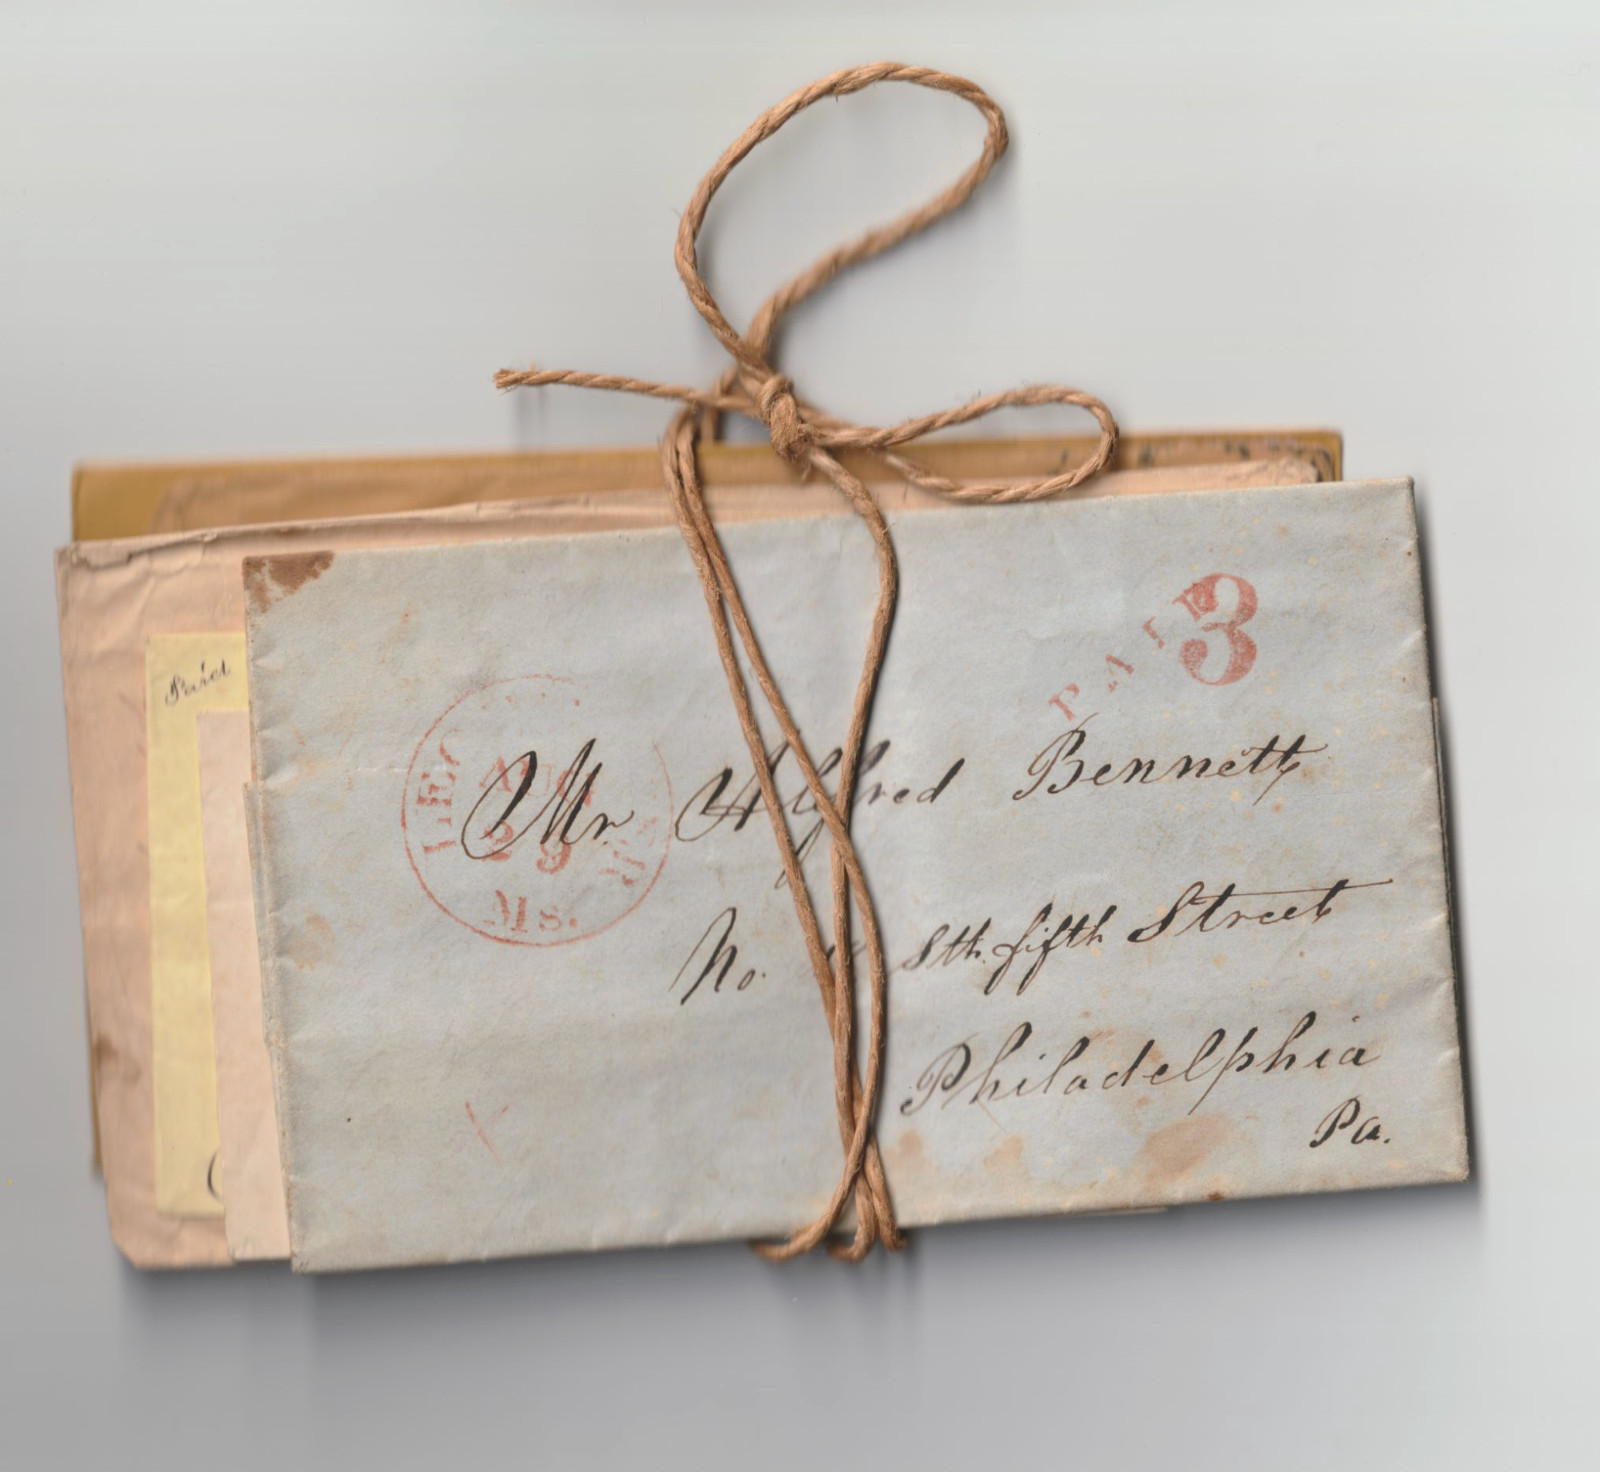 Paid
PAID
3
AUG
29
Ms.
Mr Alfred Bennett
No. Sth. fifth Street
Philadelphia
Pa.